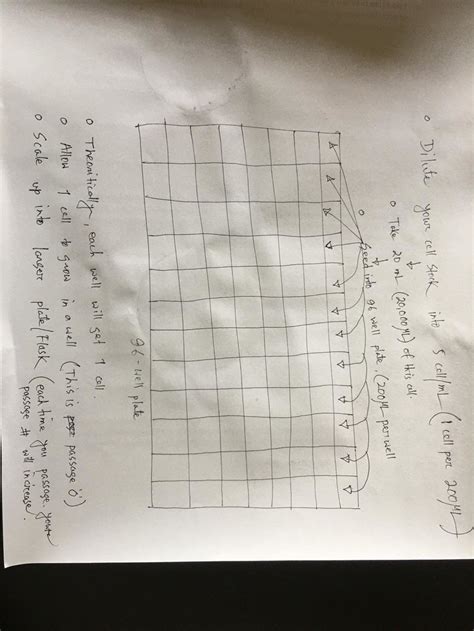 o Dilute your cell stock into 5 cell/mL (1 cell per 200µL)
o Take 20 mL (20,000µL) of this cell
o Seed into 96 well plate. (200µL per well
96-well plate
o Theoritically, each well will get 1 cell.
o Allow 1 cell to grow in a well (This is passage 0')
o Scale up into larger plate/Flask (each time you passage, your
passage # will increase.